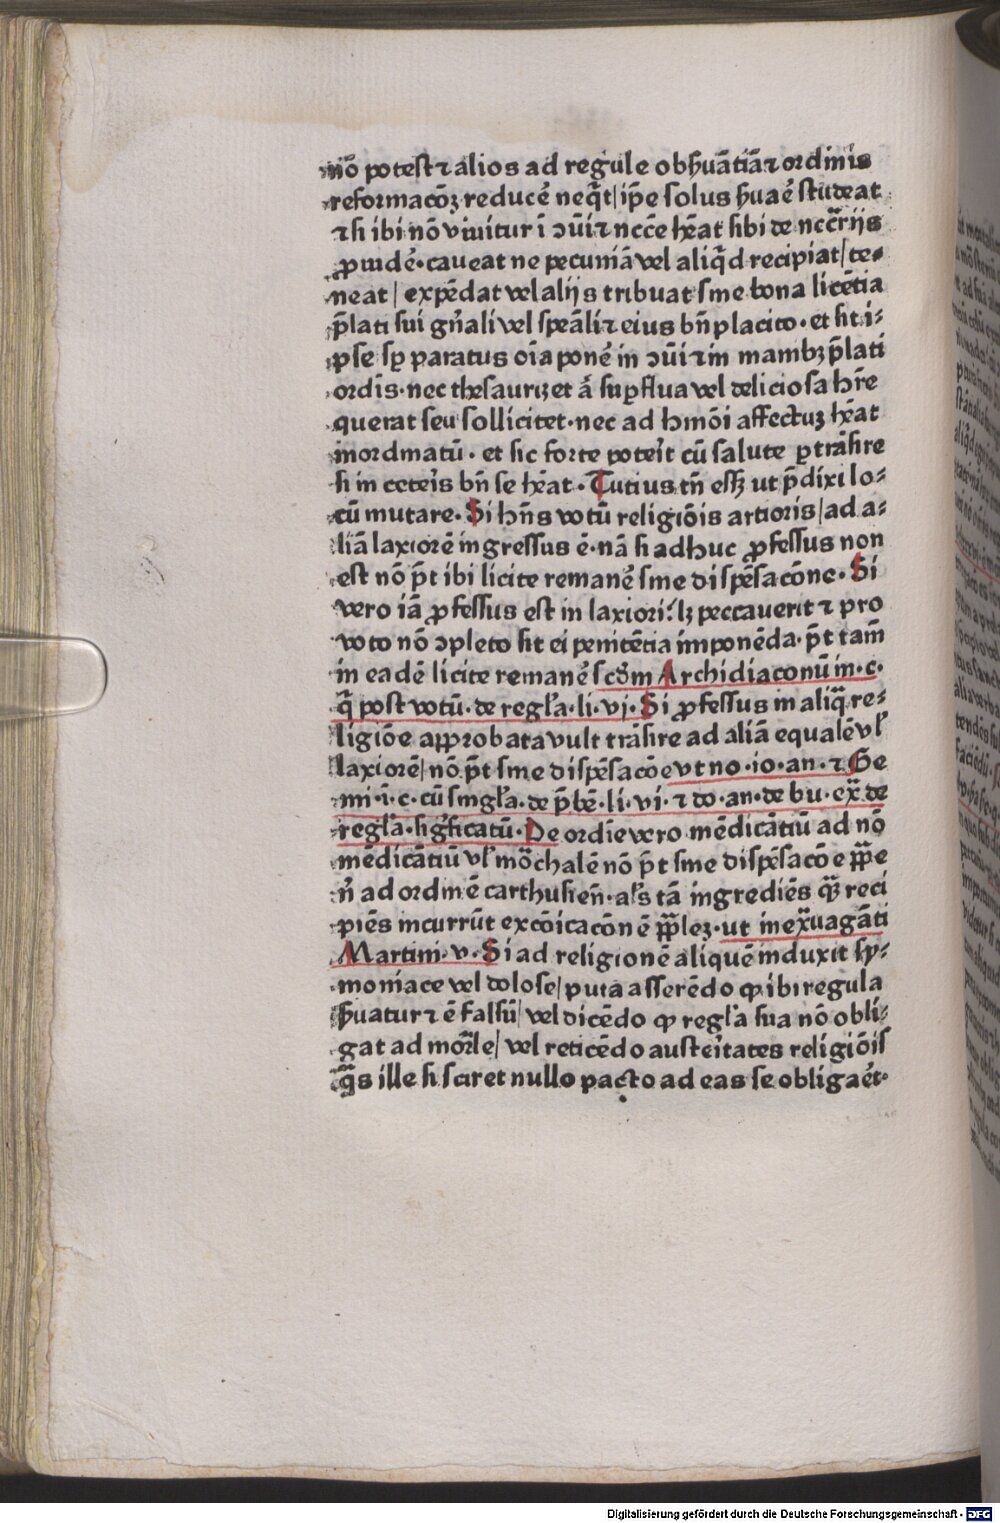 nō potest ⁊ alios ad regule obẜuātiā ⁊ ordinis
reformacōꝫ reducē neq̄t / ip̄e solus ẜuaē studeat
⁊ si ibi nō viuitur ī ↄūi ⁊ necc̄e hēat sibi de necc̄rijs
ꝓuidē · caueat ne pecuniā vel aliq̄d recipiat / te⸗
neat / expēdat vel alijs tribuat sine bona licētia
p̄lati sui gn̄ali vel sp̄eāli ⁊ eius bn̄placito · et sit i⸗
pse sꝑ paratus oīa ponē in ↄūi ⁊ in manibꝫ p̄lati
ordīs · nec thesaurizet ā suꝑflua vel deliciosa hr̄e
querat seu sollicitet · nec ad hmōi affectuꝫ hēat
inordinatū · et sic forte poteīt cū salute ꝑtrāsire
si in ceteīs bn̄ se hēat · Tutius tn̄ essꝫ ut p̄dixi lo⸗
cū mutare · Si hn̄s votū religiōis artioris / ad a⸗
liā laxiorē ingressus ē · nā si adhuc ꝓfessus non
est nō p̄t ibi licite remanē sine dispēsacōne · Si
vero iā ꝓfessus est in laxiori / lꝫ peccauerit ⁊ pro
voto nō ↄpleto sit ei penitētia imponēda · p̄t tam̄
in eadē licite remanē scd̄m Archidiaconū in · c ·
q̄ post votū · de regl̄a · li · vj · Si ꝓfessus in aliq̄ re⸗
ligiōe approbata vult trāsire ad aliā equalē vl̄
laxiorē / nō p̄t sine dispēsacōe vt no · io · an · ⁊ Ge
mi · ī · c · cū singl̄a · de p̄bē · li · vi · ⁊ do · an · de bu · ex̄ de
regl̄a · sigficatū · De ordīe vero mēdicātiū ad nō
mēdicātiū vl̄ mōchalē nō p̄t sine dispēsacōe pp̄e
n̄ ad ordinē carthusien̄ · al̄s tā ingrediēs qꝫ reci
piēs incurrūt excōicacōnē pp̄leꝫ · ut in ex̄uagāti
Martini · v · Si ad religionē aliquē induxit sy⸗
moniace vel dolose / puta asserēdo ꝙ ibi regula
ẜuatur ⁊ ē falsū / vel dicēdo ꝙ regl̄a sua nō obli⸗
gat ad mor̄le / vel reticēdo austeītates religiōis
q̄s ille si sciret nullo pacto ad eas se obligaēt ·
Digitalisierung gefördert durch die Deutsche Forschungsgemeinschaft - DFG